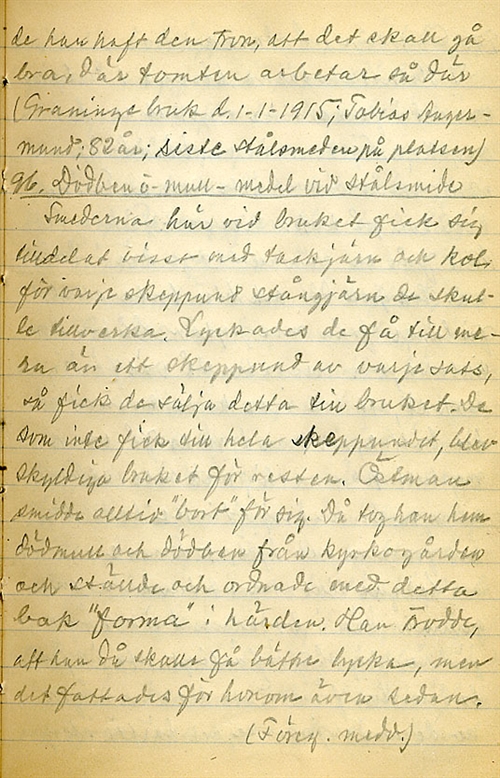 de han haft den tron, att det skall gå
bra, där tomten arbetar så där
(Graninge bruk d. 1-1-1915; Tobias Anger-
mund; 82 år; siste stålsmeden på platsen)
96. Dödben o- mull- medel vid stålsmide
Smederna här vid bruket fick sig
tilldelat visst med tackjärn och kol
för varje skeppund stångjärn de skul-
le tillverka. Lyckades de få till me-
ra än ett skeppund av varje sats,
så fick de sälja detta till bruket. De
som inte fick till hela skeppundet, blev
skyldiga bruket för resten. Östman
smidde alltid "bort" för sig. Då tog han hem
dödmull och dödben från kyrkogården
och ställde och ordnade med detta
bak "forma" i härden. Han trodde,
att han då skulle få bättre lycka, men
det fattades för honom även sedan.
(Föreg. medd.)